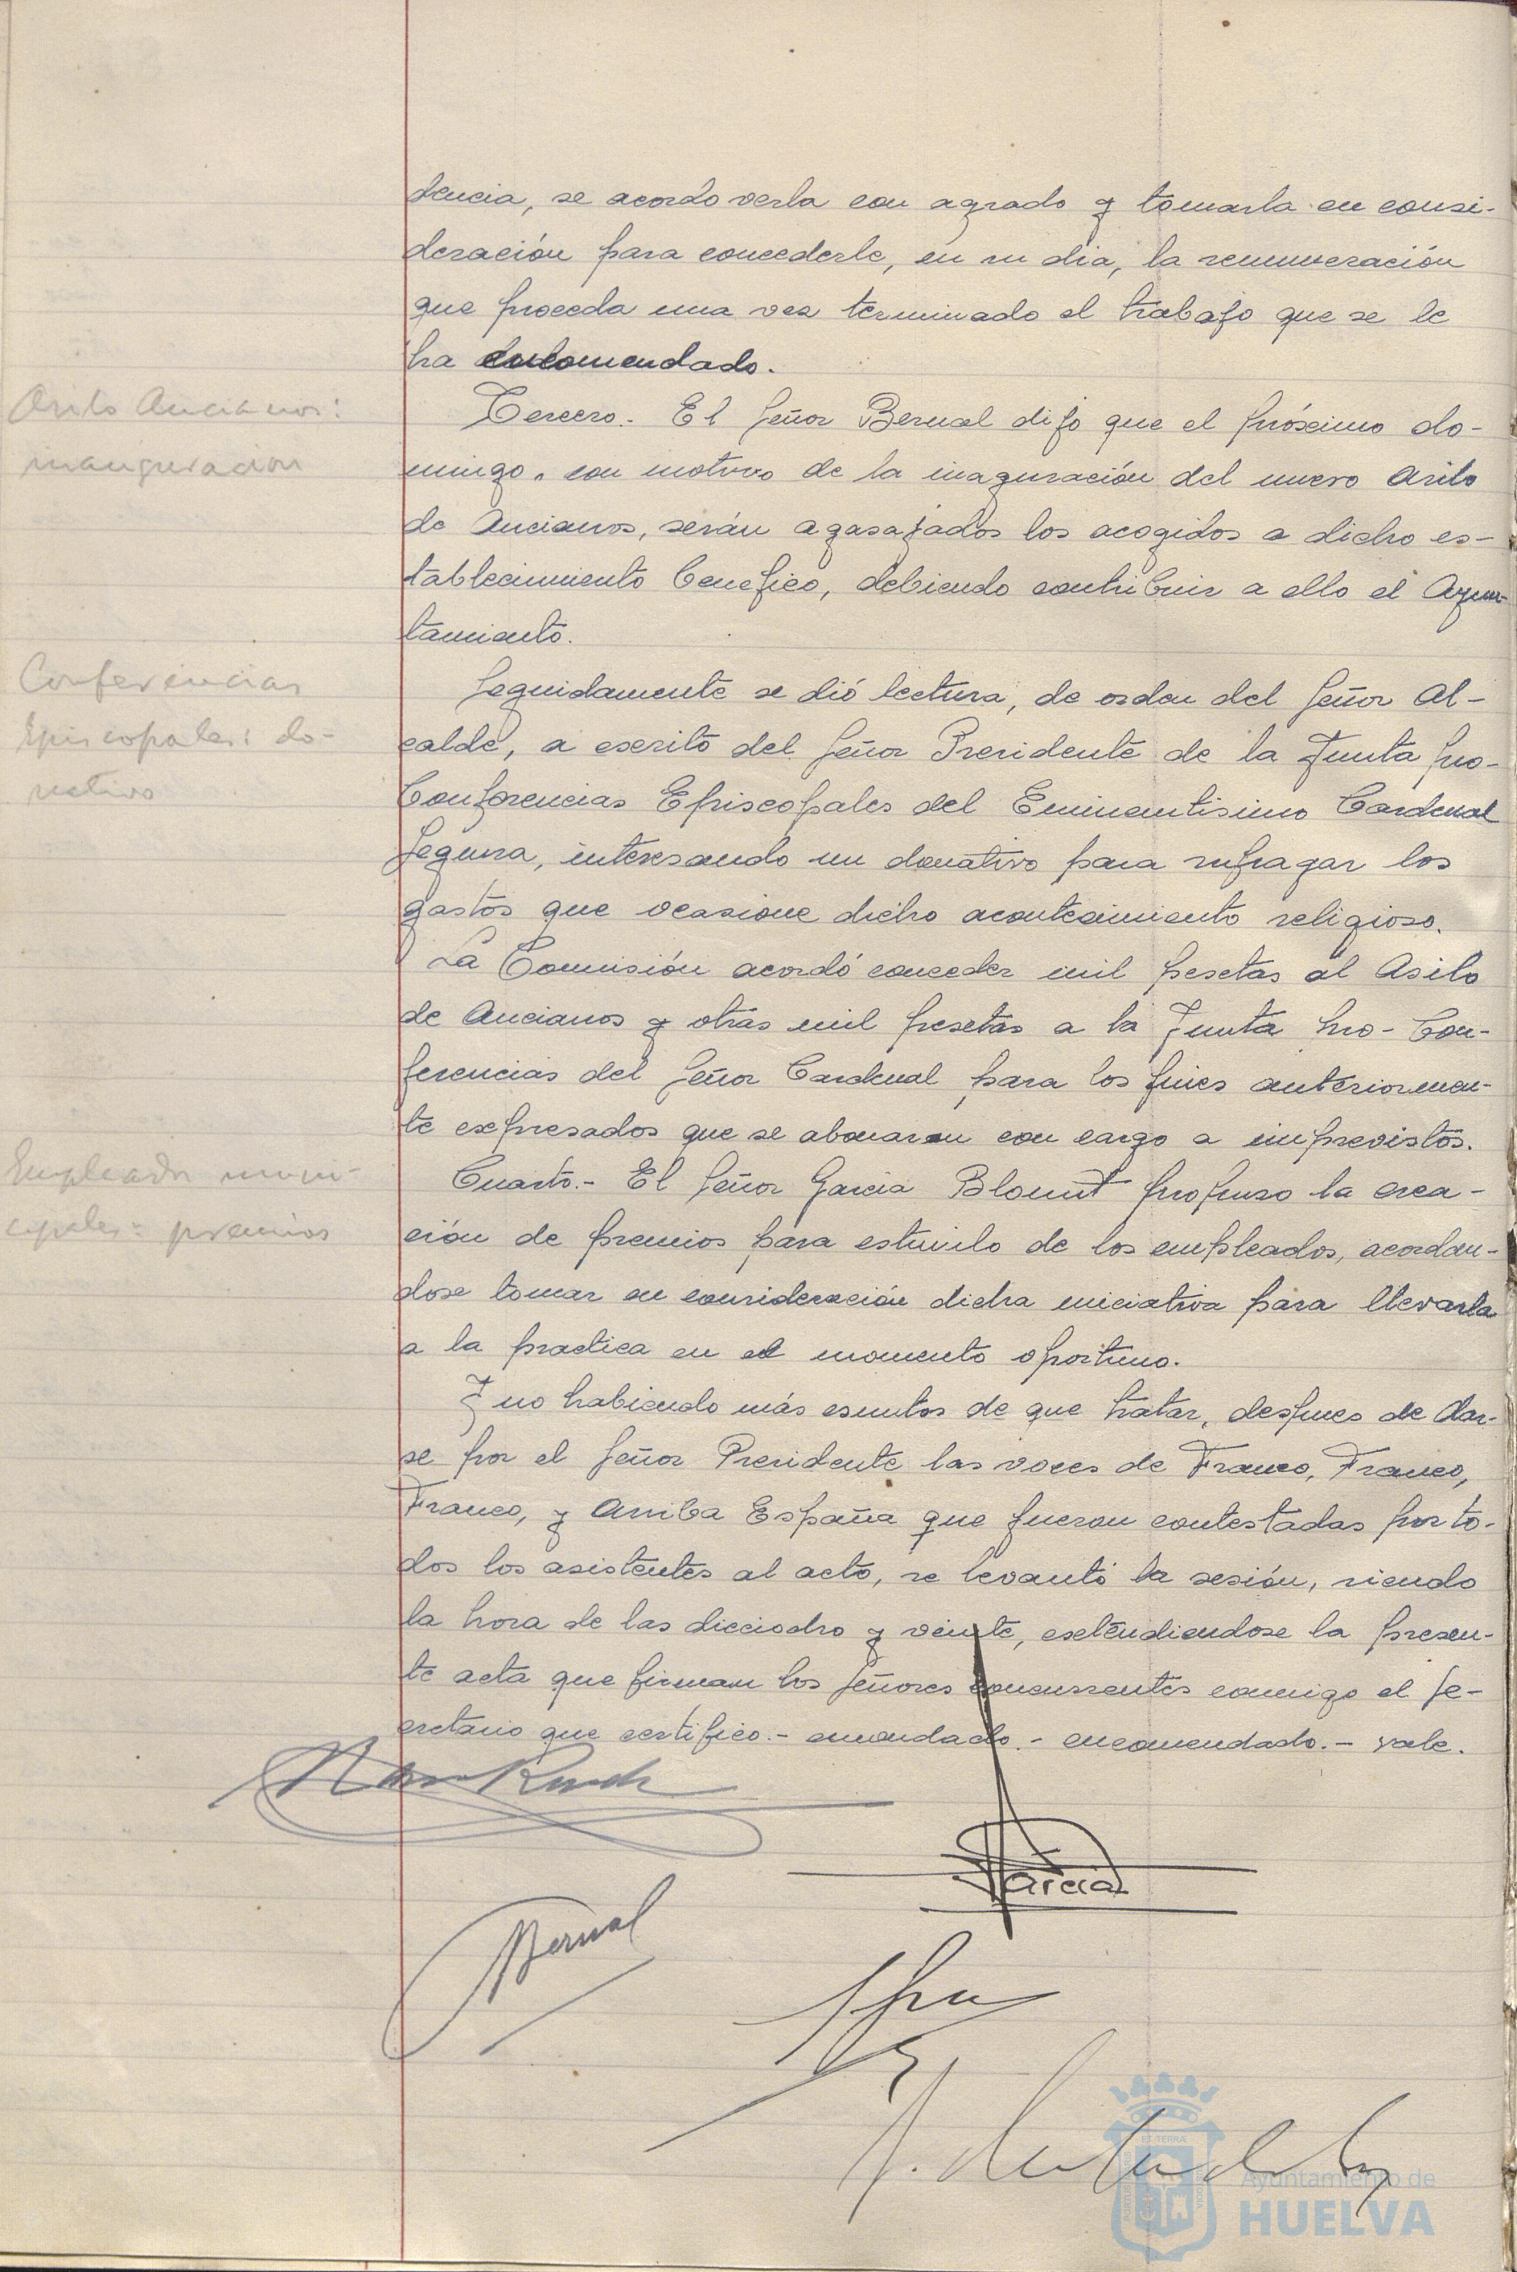 dencia, se acordo verla con agrado y tomarla en consi-
deración para concederle, en su dia, la remuneración
que proceda una vez terminado el trabajo que se le
ha encomendado.
Asilo Ancianos:
inauguracion
Tercero.- El Señor Bernal dijo que el próximo do-
mingo, con motivo de la inaguración del nuevo Asilo
de Ancianos, serán agasajados los acogidos a dicho es-
tablecimiento benefico, debiendo contribuir a ello el Ayun-
tamiento.
Conferencias
Episcopales: do-
nativo
Seguidamente se dió lectura, de orden del Señor Al-
calde, a escrito del Señor Presidente de la Junta pro-
Conferencias Episcopales del Eminentisimo Cardenal
Segura, interesando un donativo para sufragar los
gastos que ocasione dicho acontecimiento religioso.
La Comisión acordó conceder mil pesetas al Asilo
de Ancianos y otras mil pesetas a la Junta pro-Con-
ferencias del Señor Cardenal para los fines anteriormen-
te expresados que se abonaran con cargo a imprevistos.
Empleados muni-
cipales: premios
Cuarto.- El Señor Garcia Blount propuso la crea-
ción de premios para estimulo de los empleados, acordan-
dose tomar en consideración dicha iniciativa para llevarla
a la practica en el momento oportuno.
Y no habiendo más asuntos de que tratar, despues de dar-
se por el Señor Presidente las voces de Franco, Franco,
Franco, y Arriba España que fueron contestadas por to-
dos los asistentes al acto, se levantó la sesión, siendo
la hora de las dieciocho y veinte, extendiendose la presen-
te acta que firman los Señores concurrentes conmigo el Se-
cretario que certifico.- enmendado.- encomendado.- vale.
Garcia
Bernal
Ayuntamiento de
HUELVA